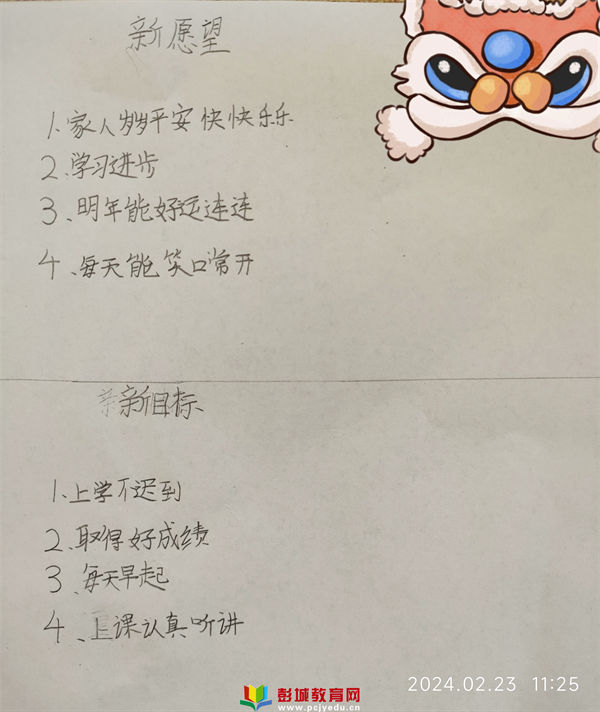 新愿望
1、家人岁岁平安 快快乐乐
2、学习进步
3、明年能好运连连
4、每天能笑口常开
新目标
1、上学不迟到
2、取得好成绩
3、每天早起
4、上课认真听讲
2024.02.23 11:25
彭城教育网
www.pcjyedu.cn